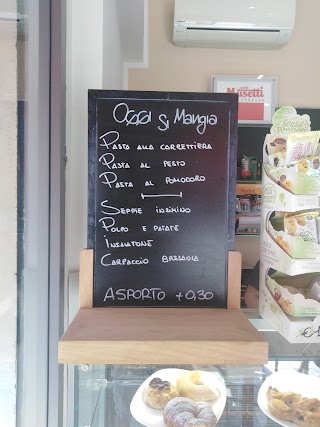 Oggi Si Mangia
Pasta alla carrettiera
Pasta al pesto
Pasta al pomodoro
Seppie inzimino
Polpo e patate
Insalatone
Carpaccio Bresaola
ASPORTO +0,30
Musetti